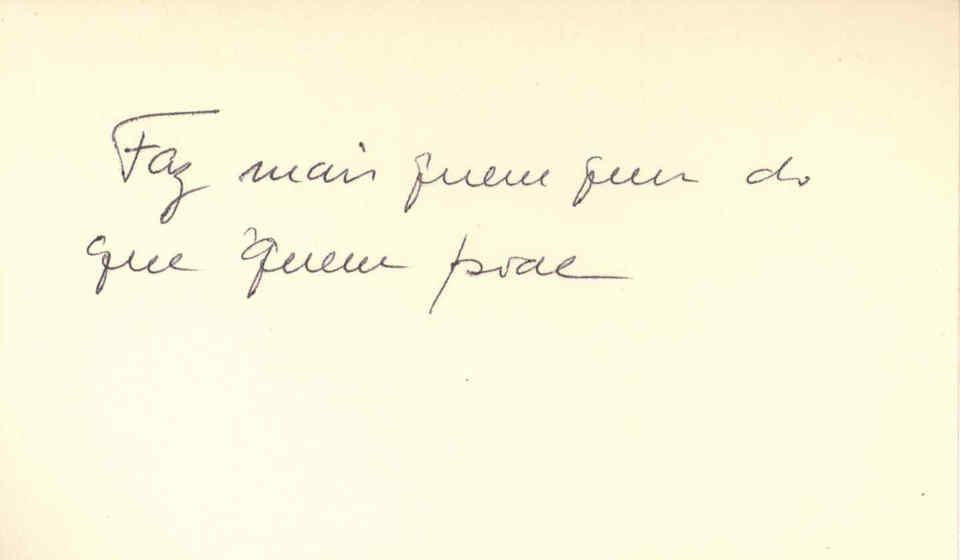 Faz mais quem quer do
que quem pode